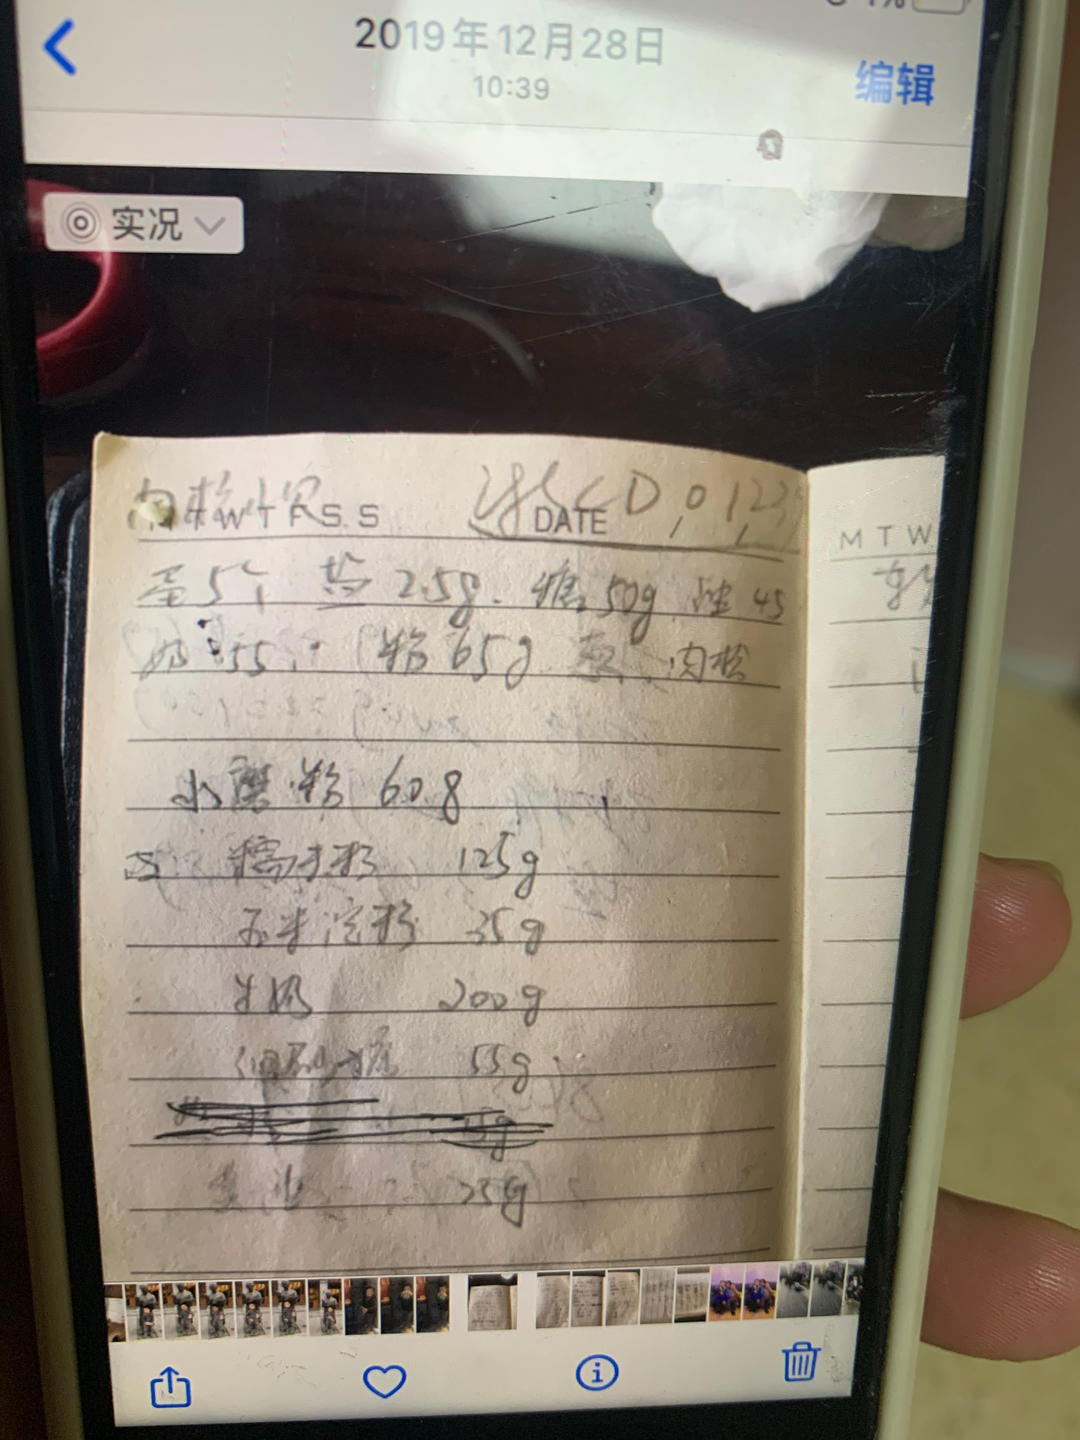 2019年12月28日
10:39
编辑
实况
肉松小贝
W T F S S
DATE
M T W
蛋5个 盐2.5g. 糖50g 油45
奶55 粉65g 葱 肉松
水磨粉 60g
糯米粉 125g
玉米淀粉 35g
牛奶 200g
细砂糖 55g
25g